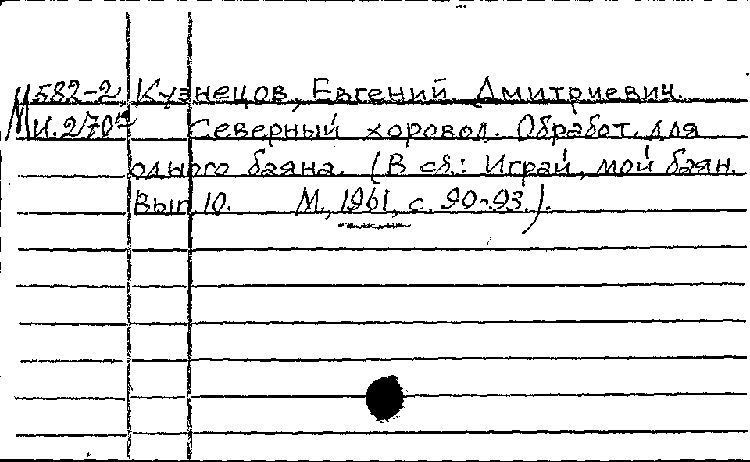 М 582-2 Кузнецов, Евгений Дмитриевич.
М И.2/70 Северный хоровод. Обработ. для
одного баяна. (В сб.: Играй, мой баян.
Вып. 10. М., 1961, с. 90-93.).